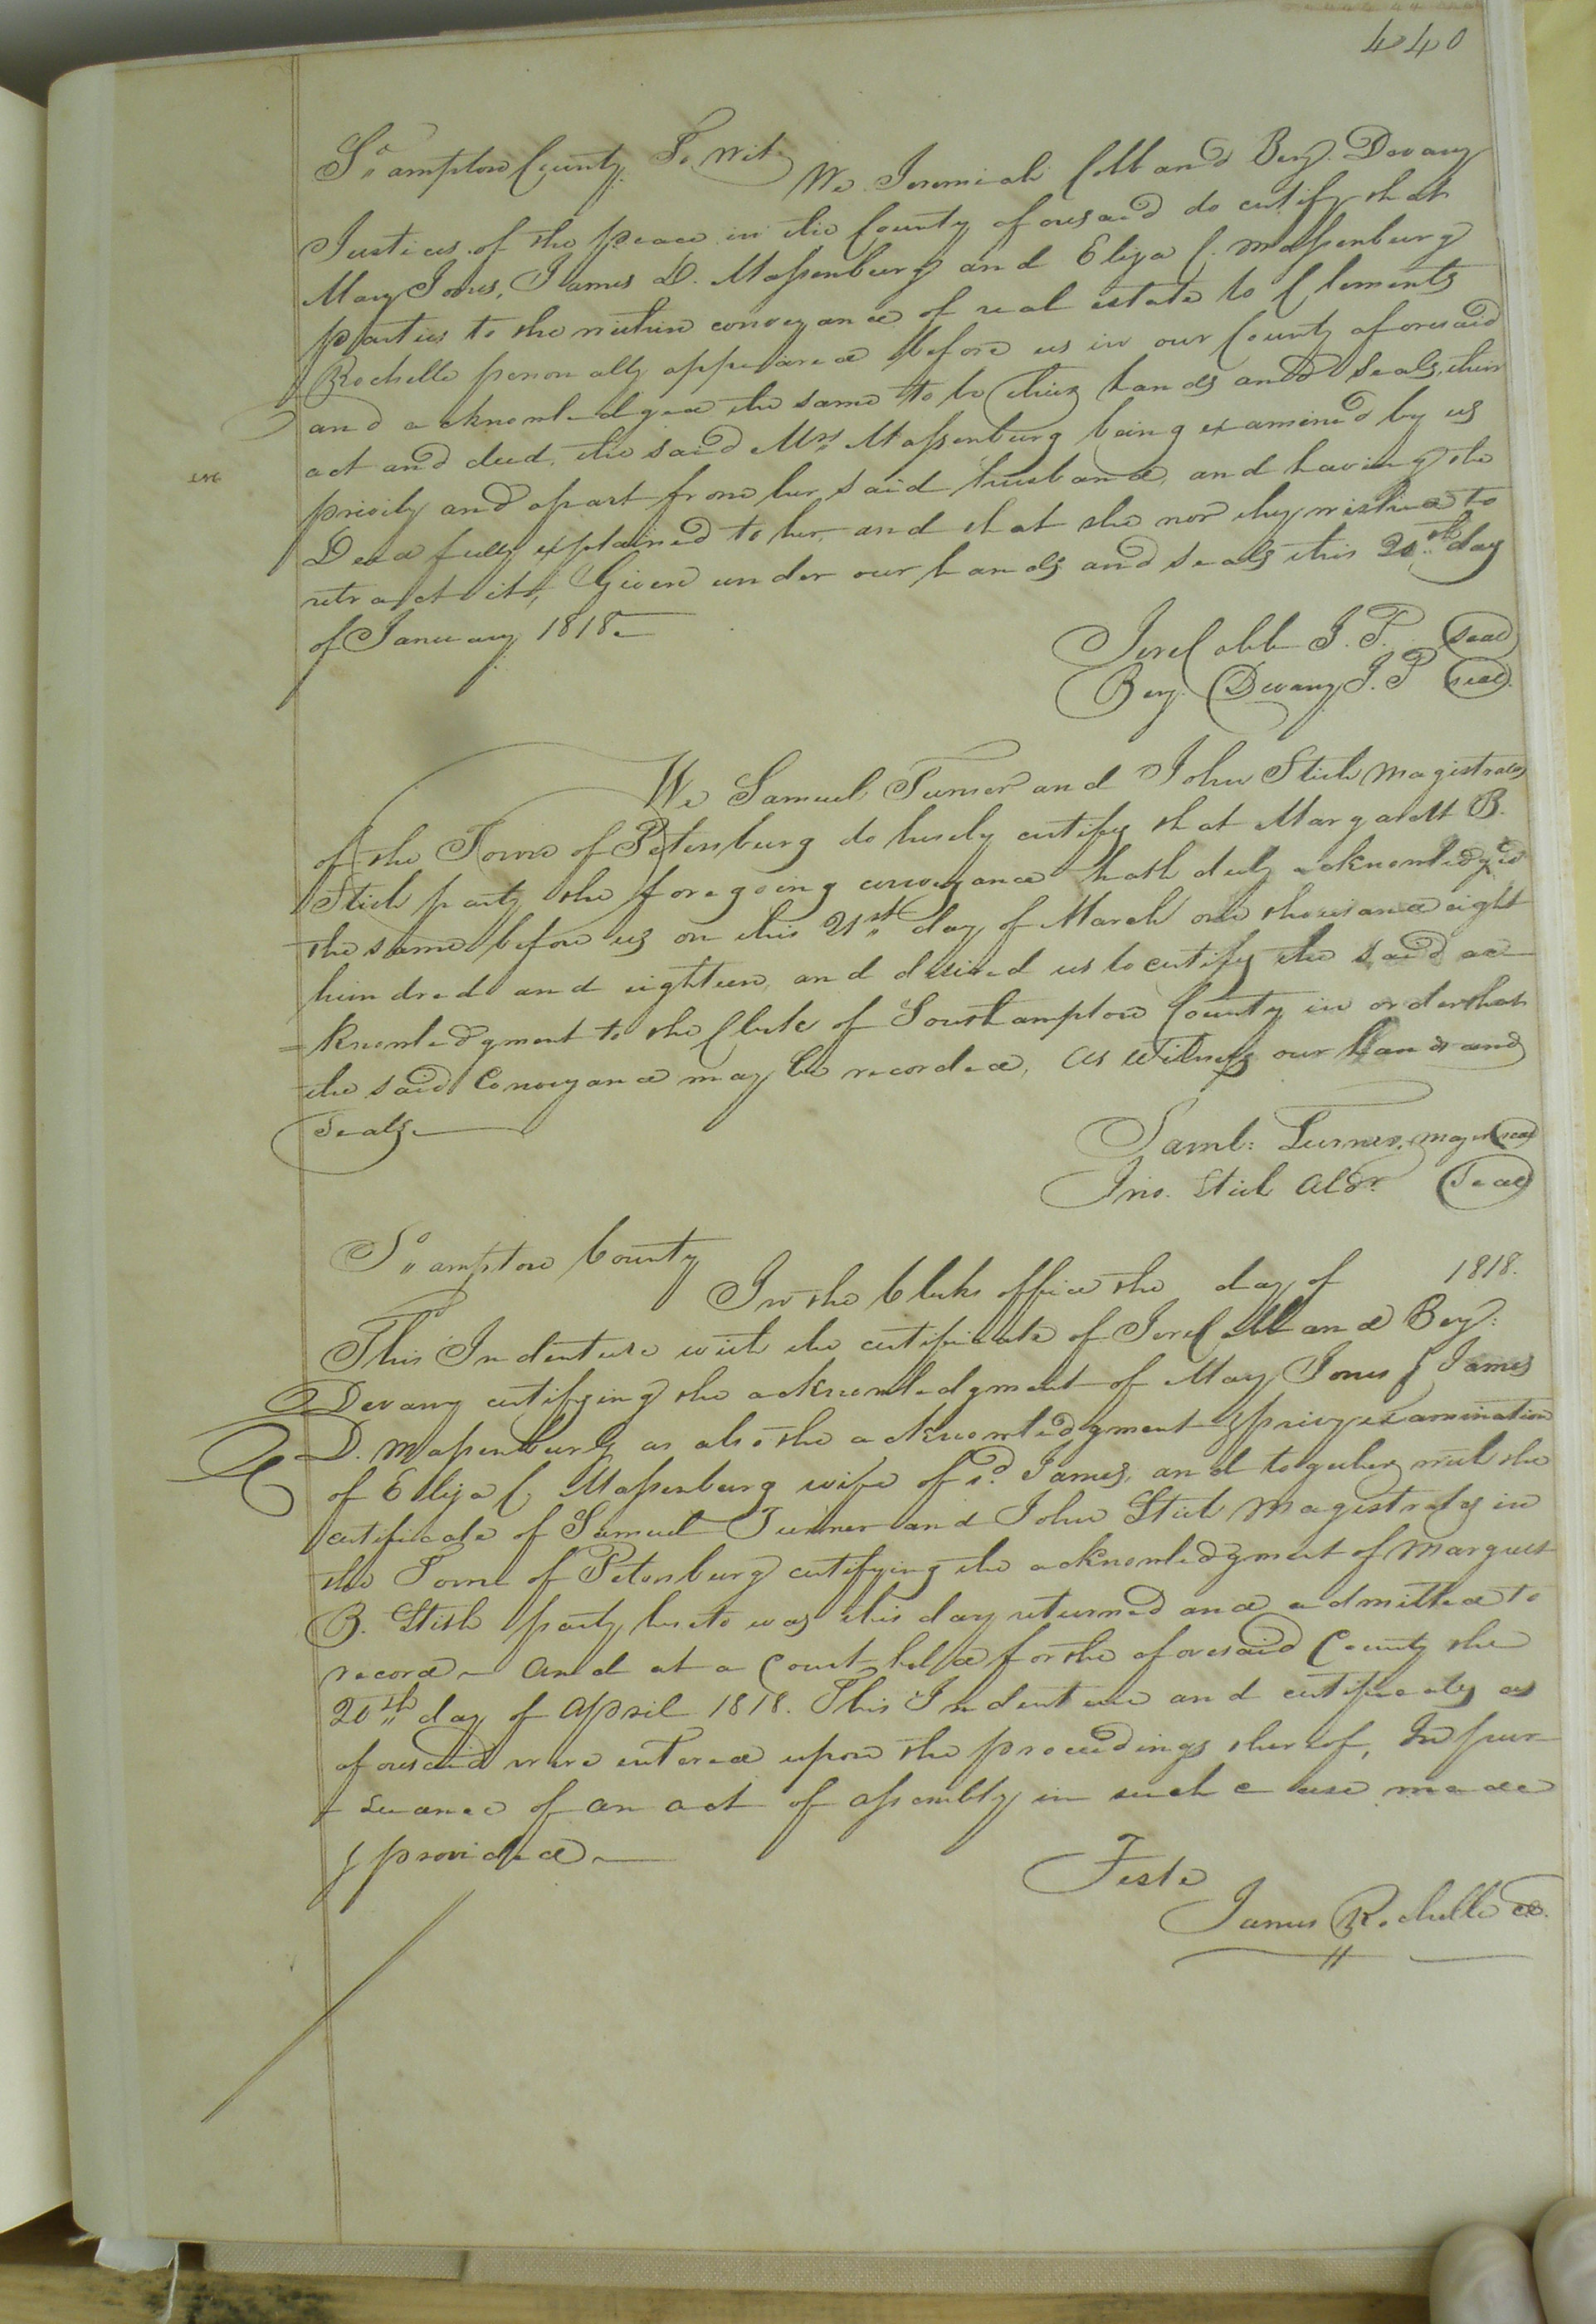 440
So,,ampton County To, Wit, We Jeremiah Cobb and Benj. Devany
Justices of the peace in the County aforesaid do certify that
Mary Jones, James D. Massenburg and Eliza C. Massenburg
parties to the within conveyance of real estate to Clements
Rochelle personally appeared before us in our County aforesaid
and acknowledged the same to be their hands and seals, their
act and deed, the said Mrs. Massenburg being examined by us
privily and apart from her said husband, and having the
Deed fully explained to her, and that she nor they wished to
retract it, Given under our hands and seals this 20th day
of January 1818.
Jere Cobb J. P. seal
Benj. Devany J. P seal.
We Samuel Turner and John Stith Magistrates
of the Town of Petersburg do hereby certify that Margarett B.
Stith party the foregoing conveyance hath duly acknowledged
the same before us on this 21st day of March one thousand eight
hundred and eighteen, and desired us to certify the said ac
=knowledgment to the Clerk of Southampton County in order that
the said Conveyance may be recorded, As Witness our hands and
seals
Saml: Turner, mayor seal
Jno. Stith Aldr. seal
So,,ampton County
In the Clerks office the day of 1818.
This Indenture with the certificate of Jere Cobb and Benj:
Devany certifying the acknowledgment of Mary Jones & James
D. Massenburg as also the acknowledgment & privy examination
of Eliza C. Massenburg wife of sd. James, and together with the
certificate of Samuel Turner and John Stith Magistrates in
the Town of Petersburg certifying the acknowledgment of Margaret
B. Stith party hereto was this day returned and admitted to
record and at a Court held for the aforesaid County the
20th day of April 1818. This Indenture and certificates as
aforesaid were entered upon the proceedings thereof, In pur
suance of an act of assembly in such case made
& provided
Teste
James Rochelle cc.